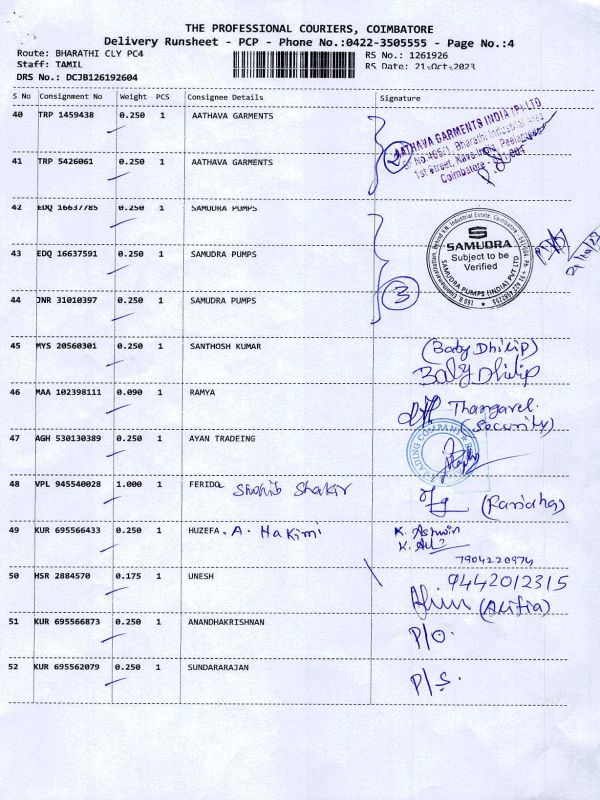 THE PROFESSIONAL COURIERS, COIMBATORE
Delivery Runsheet - PCP - Phone No.:0422-3505555 - Page No.:4
Route: BHARATHI CLY PC4
RS No.: 1261926
Staff: TAMIL
RS Date: 21-Oct-2023
DRS No.: DCJB126192604
S No Consignment No Weight PCS Consignee Details Signature
40 TRP 1459438 0.250 1 AATHAVA GARMENTS
AATHAVA GARMENTS INDIA (P) LTD
Bharathi Industrial Area
1st Street,
Coimbatore
41 TRP 5426061 0.250 1 AATHAVA GARMENTS
42 EDQ 16637785 0.250 1 SAMUDRA PUMPS
43 EDQ 16637591 0.250 1 SAMUDRA PUMPS
SAMUDRA
Subject to be
Verified
SAMUDRA PUMPS (INDIA) PVT LTD
3
44 JNR 31010397 0.250 1 SAMUDRA PUMPS
45 MYS 20560301 0.250 1 SANTHOSH KUMAR (Baby Dhilip)
Baby Dhilip
46 MAA 102398111 0.090 1 RAMYA Thangavel
(Security)
47 AGH 530130389 0.250 1 AYAN TRADEING
48 VPL 945540028 1.000 1 FERIDO Shakir
49 KUR 695566433 0.250 1 HUZEFA . A. Hakimi K. Ashwin
7904220974
50 HSR 2884570 0.175 1 UNESH 9442012315
(Arifia)
51 KUR 695566873 0.250 1 ANANDHAKRISHNAN P/O.
52 KUR 695562079 0.250 1 SUNDARARAJAN P/S.